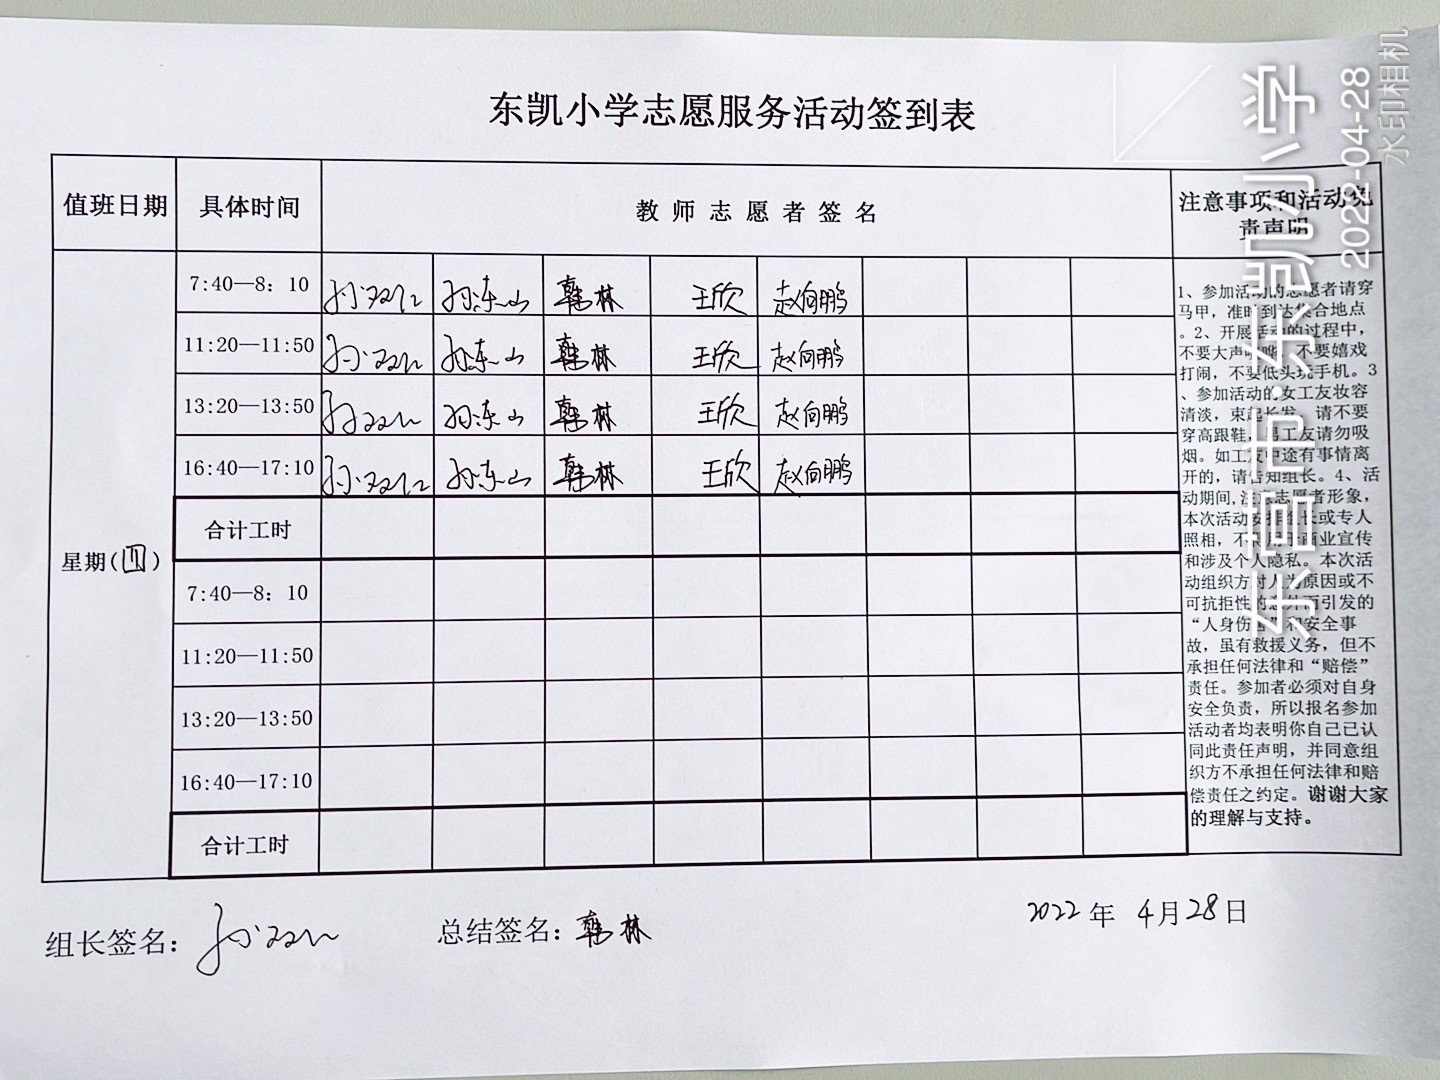 东凯小学志愿服务活动签到表
值班日期 具体时间 教师志愿者签名 注意事项和活动免
责声明
7:40—8：10 孙双红 孙东山 韩林 王欣 赵向鹏
11:20—11:50 孙双红 孙东山 韩林 王欣 赵向鹏
13:20—13:50 孙双红 孙东山 韩林 王欣 赵向鹏
16:40—17:10 孙双红 孙东山 韩林 王欣 赵向鹏
合计工时
星期(四)
7:40—8：10
11:20—11:50
13:20—13:50
16:40—17:10
合计工时
1、参加活动的志愿者请穿
马甲，准时到达集合地点
。2、开展活动的过程中，
不要大声喧哗，不要嬉戏
打闹，不要低头玩手机。3
、参加活动的女工友妆容
清淡，束起长发，请不要
穿高跟鞋，男工友请勿吸
烟。如工友中途有事情离
开的，请告知组长。4、活
动期间,注意志愿者形象，
本次活动安排组长或专人
照相，不得用于商业宣传
和涉及个人隐私。本次活
动组织方对人为原因或不
可抗拒性的意外而引发的
“人身伤害”和安全事
故，虽有救援义务，但不
承担任何法律和“赔偿”
责任。参加者必须对自身
安全负责，所以报名参加
活动者均表明你自己已认
同此责任声明，并同意组
织方不承担任何法律和赔
偿责任之约定。谢谢大家
的理解与支持。
组长签名： 孙双红 总结签名：韩林
2022年 4月28日
东营市·东凯小学
2022-04-28
水印相机